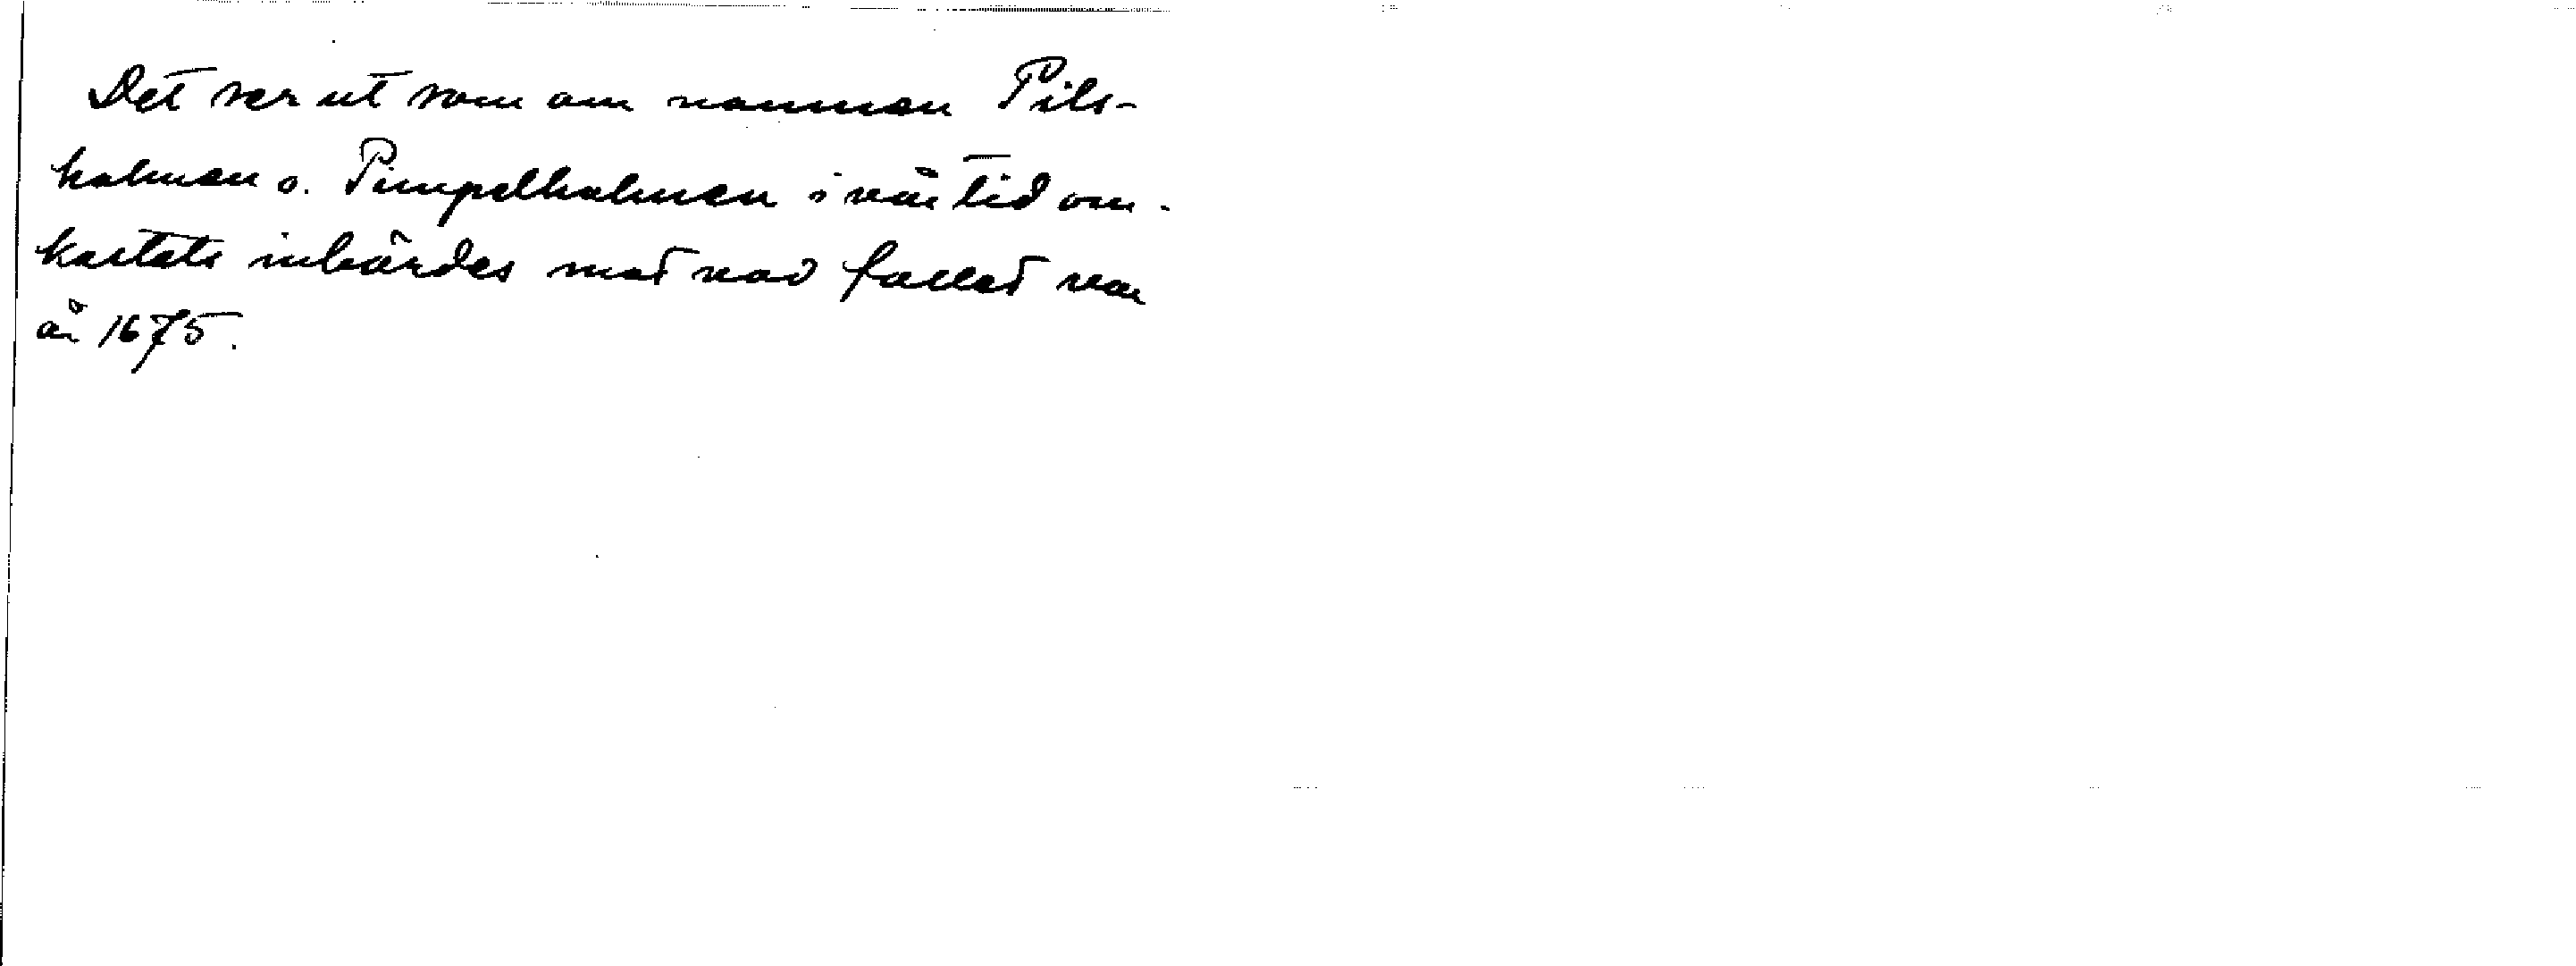 Det ser ut som om namnen Pils-
holmen o. Pimpelholmen i vår tid om-
kastats inbördes mot vad fallet var
år 1675.